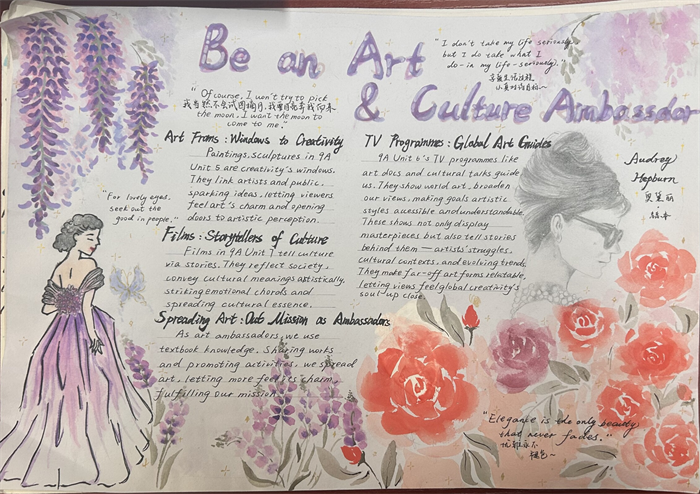 Be an Art
& Culture Ambassdor
"I don't take my life seriously,
but I do take what I
do-in my life-seriously."
"Of course, I won't try to pick
我当然不会试图摘月,我要月亮奔我而来
the moon, I want the moon to
come to me."
Art Froms: Windows to Creativity
Paintings, sculptures in 9A
Unit 5 are creativity's windows.
They link artists and public,
sparking ideas, letting viewers
feel art's charm and opening
doors to artistic perception.
"For lovely eyes,
seek out the
good in people."
Films: Storytellers of Culture
Films in 9A Unit 7 tell culture
via stories. They reflect society,
convey cultural meanings artistically,
striking emotional chords and
spreading cultural essence.
Spreading Art: Out Mission as Ambassadors
As art ambassadors, we use
textbook knowledge. Sharing works
and promoting activities, we spread
art, letting more feel its charm,
fulfilling our mission.
TV Programmes: Global Art Guides
9A Unit 6's TV programmes like
art docs and cultural talks guide
us. They show world art, broaden
our views, making goals artistic
styles acessible and understandable.
These shows not only display
masterpieces but also tell stories
behind them — artists' struggles,
cultural contexts, and evolving trends.
They make far-off art forms relatable,
letting views feel global creativity's
soul-up close.
Audrey
Hepburn
奥黛丽
赫本
"Elegance is the only beauty
that never fades."
优雅永不
褪色~